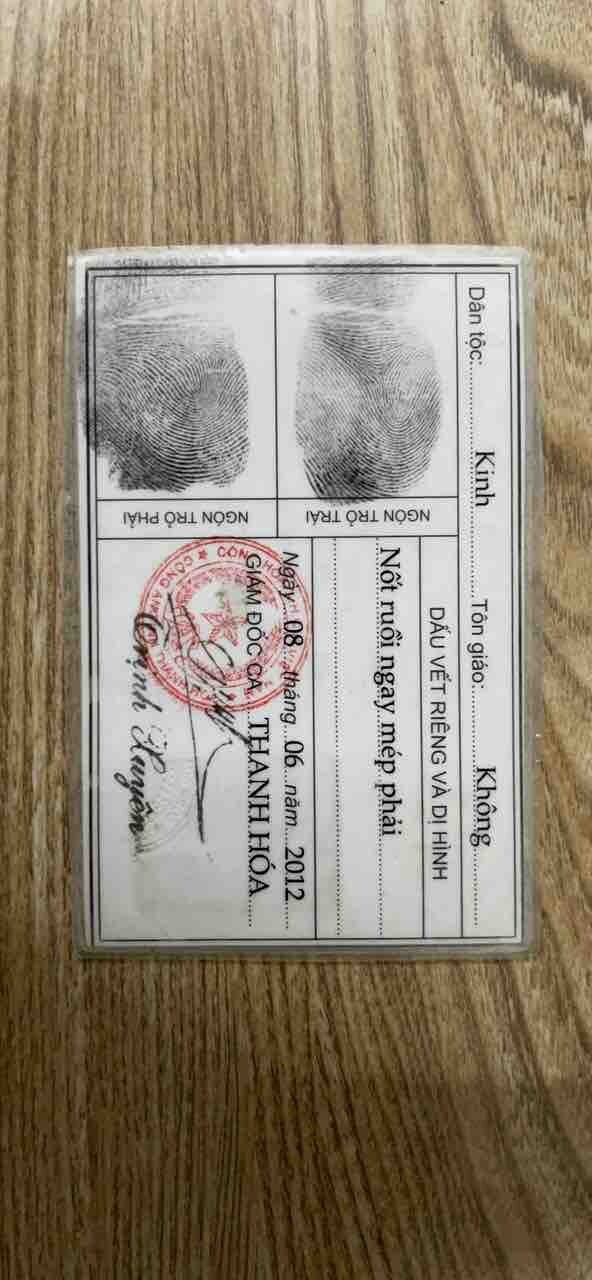 Dân tộc: Kinh Tôn giáo: Không
NGÓN TRỎ TRÁI
NGÓN TRỎ PHẢI
DẤU VẾT RIÊNG VÀ DỊ HÌNH
Nốt ruồi ngay mép phải
Ngày 08 tháng 06 năm 2012
GIÁM ĐỐC CA THANH HÓA
CỘNG HÒA
CÔNG AN
Trịnh Xuyên